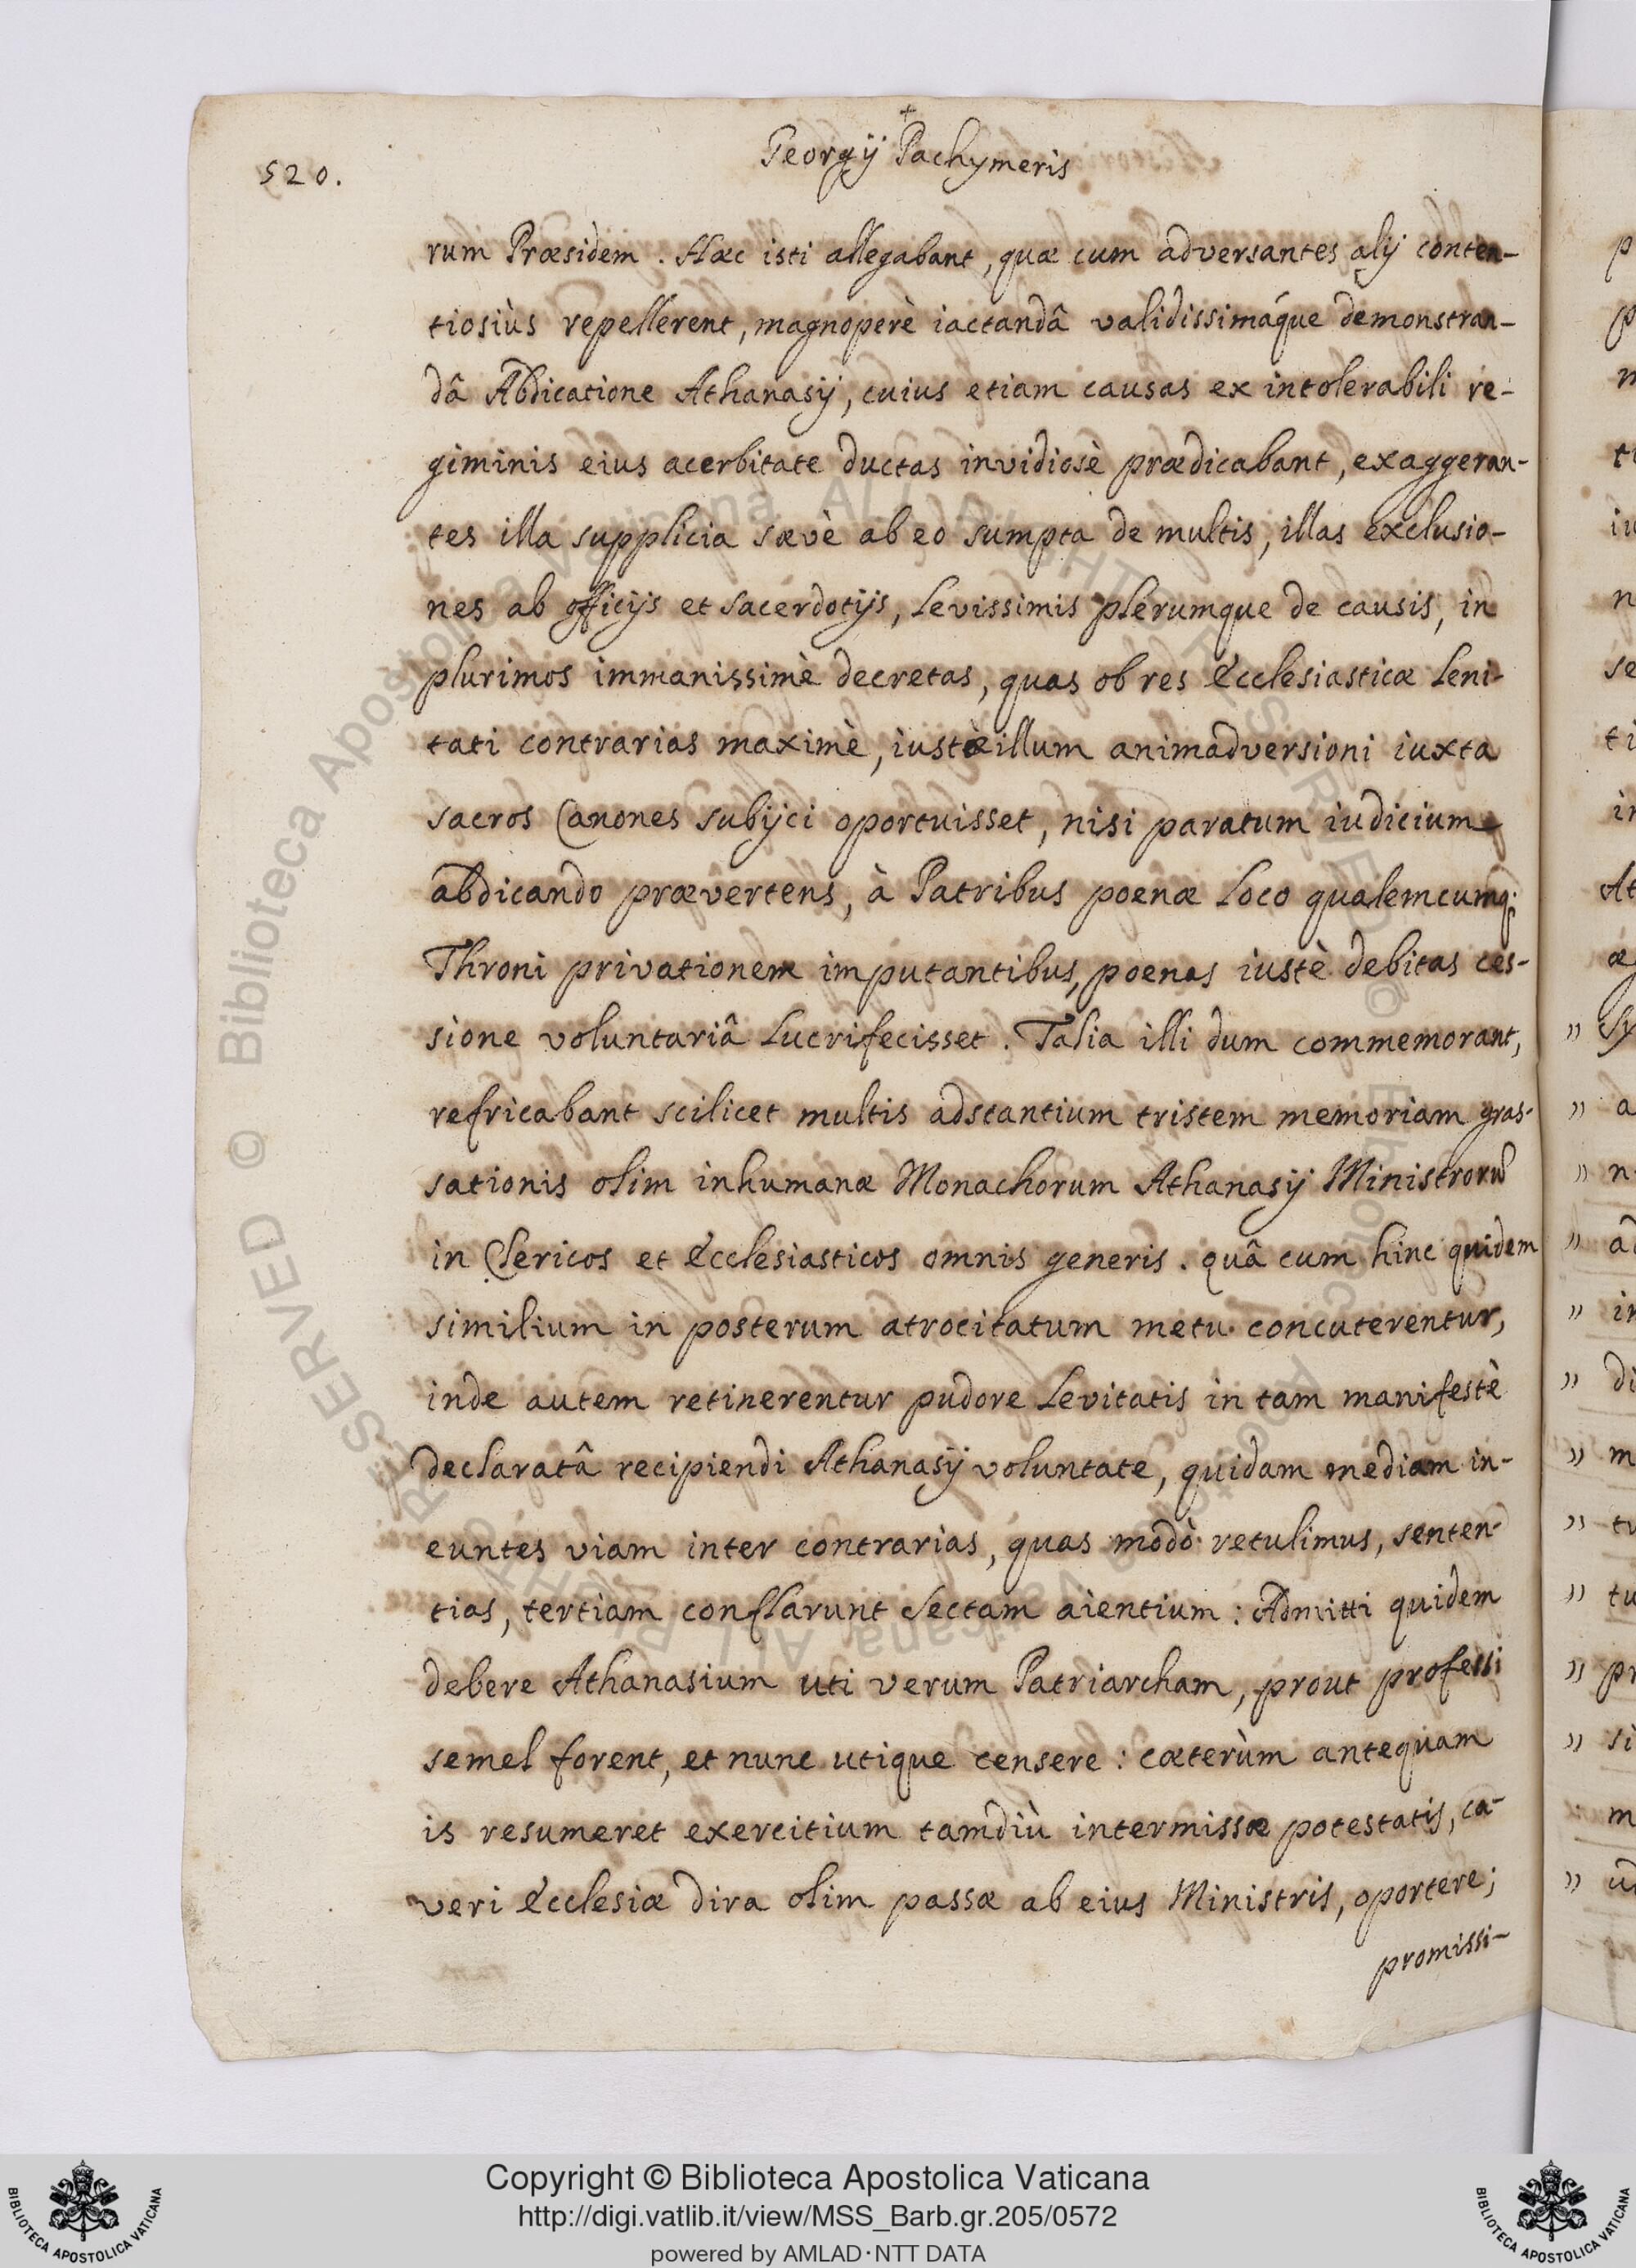 520.
Georgij Pachymeris
rum Præsidem. Hæc isti allegabant, quæ cum adversantes alij conten-
tiosiùs repellerent, magnoperè iactandâ validissimáque demonstran-
dâ Abdicatione Athanasij, cuius etiam causas ex intolerabili re-
giminis eius acerbitate ductas invidiosè prædicabant, exaggeran-
tes illa supplicia sævè ab eo sumpta de multis, illas exclusio-
nes ab officijs et sacerdotijs, levissimis plerumque de causis, in
plurimos immanissimè decretas, quas ob res Ecclesiasticæ leni-
tati contrarias maximè, iustè illum animadversioni iuxta
sacros Canones subijci oportuisset, nisi paratum iudicium
abdicando prævertens, à Patribus poenæ loco qualemcumq;
Throni privationem imputantibus, poenas iustè debitas ces-
sione voluntariâ lucrifecisset. Talia illi dum commemorant,
refricabant scilicet multis adstantium tristem memoriam gras-
sationis olim inhumanæ Monachorum Athanasij Ministrorũ
in Clericos et Ecclesiasticos omnis generis. quâ cum hinc quidem
similium in posterum atrocitatum metu concuterentur,
inde autem retinerentur pudore levitatis in tam manifestè
declaratâ recipiendi Athanasij voluntate, quidam mediam in-
euntes viam inter contrarias, quas modò retulimus, senten-
tias, tertiam conflarunt sectam aientium: Admitti quidem
debere Athanasium uti verum Patriarcham, prout professi
semel forent, et nunc utique censere: cæterùm antequam
is resumeret exercitium tamdiù intermissæ potestatis, ca-
veri Ecclesiæ dira olim passæ ab eius Ministris, oportere;
promissi-
Copyright © Biblioteca Apostolica Vaticana
http://digi.vatlib.it/view/MSS_Barb.gr.205/0572
powered by AMLAD·NTT DATA
BIBLIOTECA APOSTOLICA VATICANA
BIBLIOTECA APOSTOLICA VATICANA